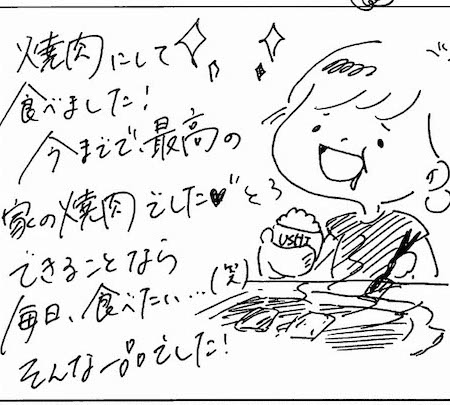 焼肉にして
食べました!
今までで、最高の
家の焼肉でした♥
できることなら
毎日、食べたい…(笑)
そんな一品でした!
とろ
USHI